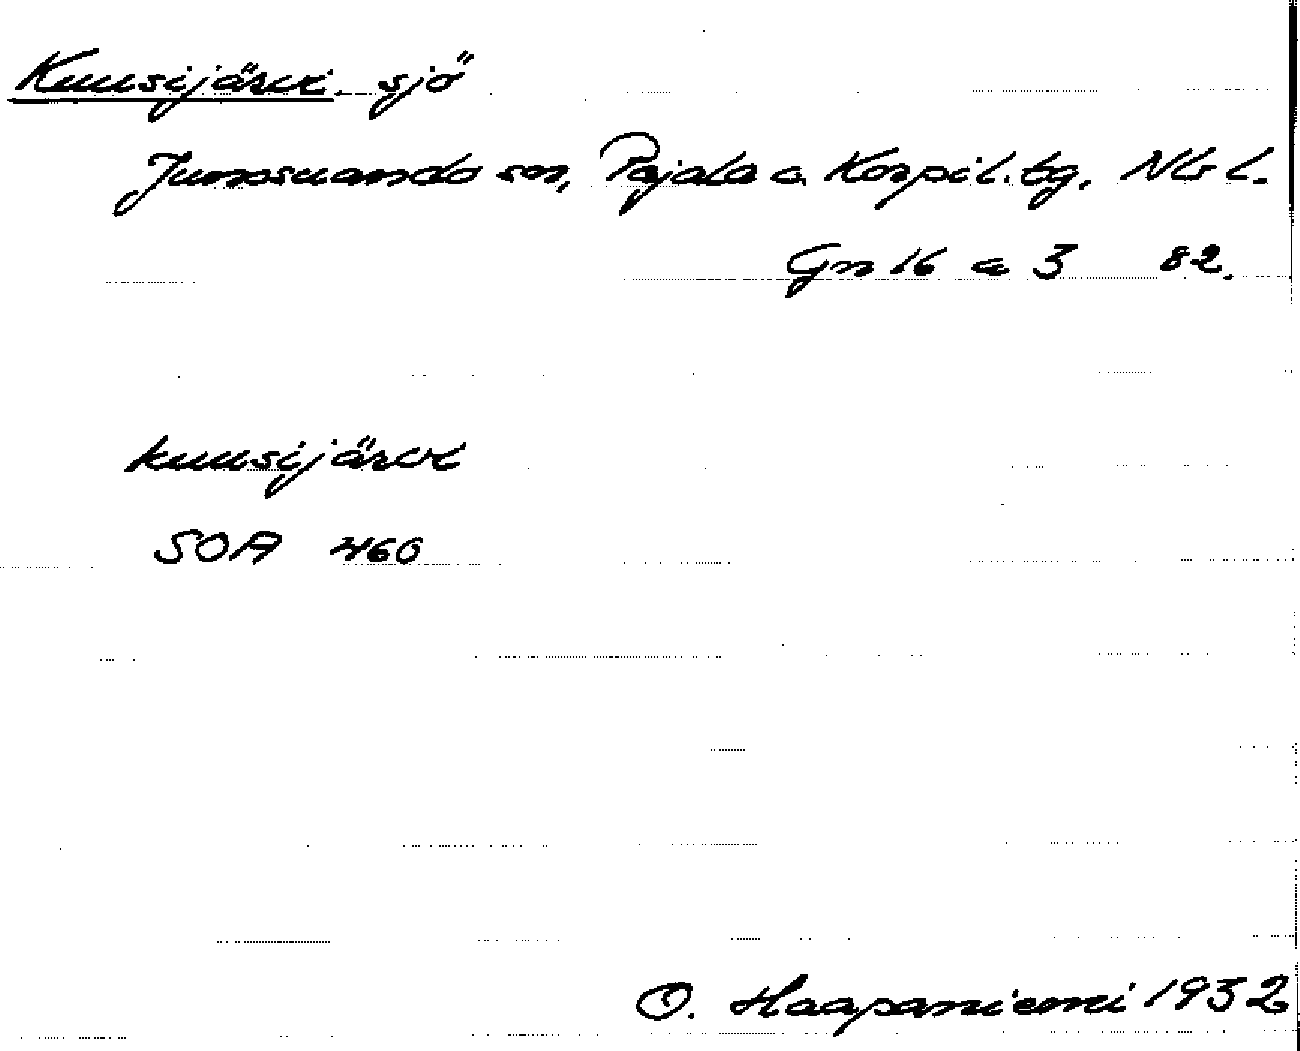 Kuusijärvi sjö
Junosuando sn, Pajala o. Korpil. tg. Nb l.
Gn 16 a 3 82.
kuusijärvi
SOA 460
O. Haapaniemi 1932